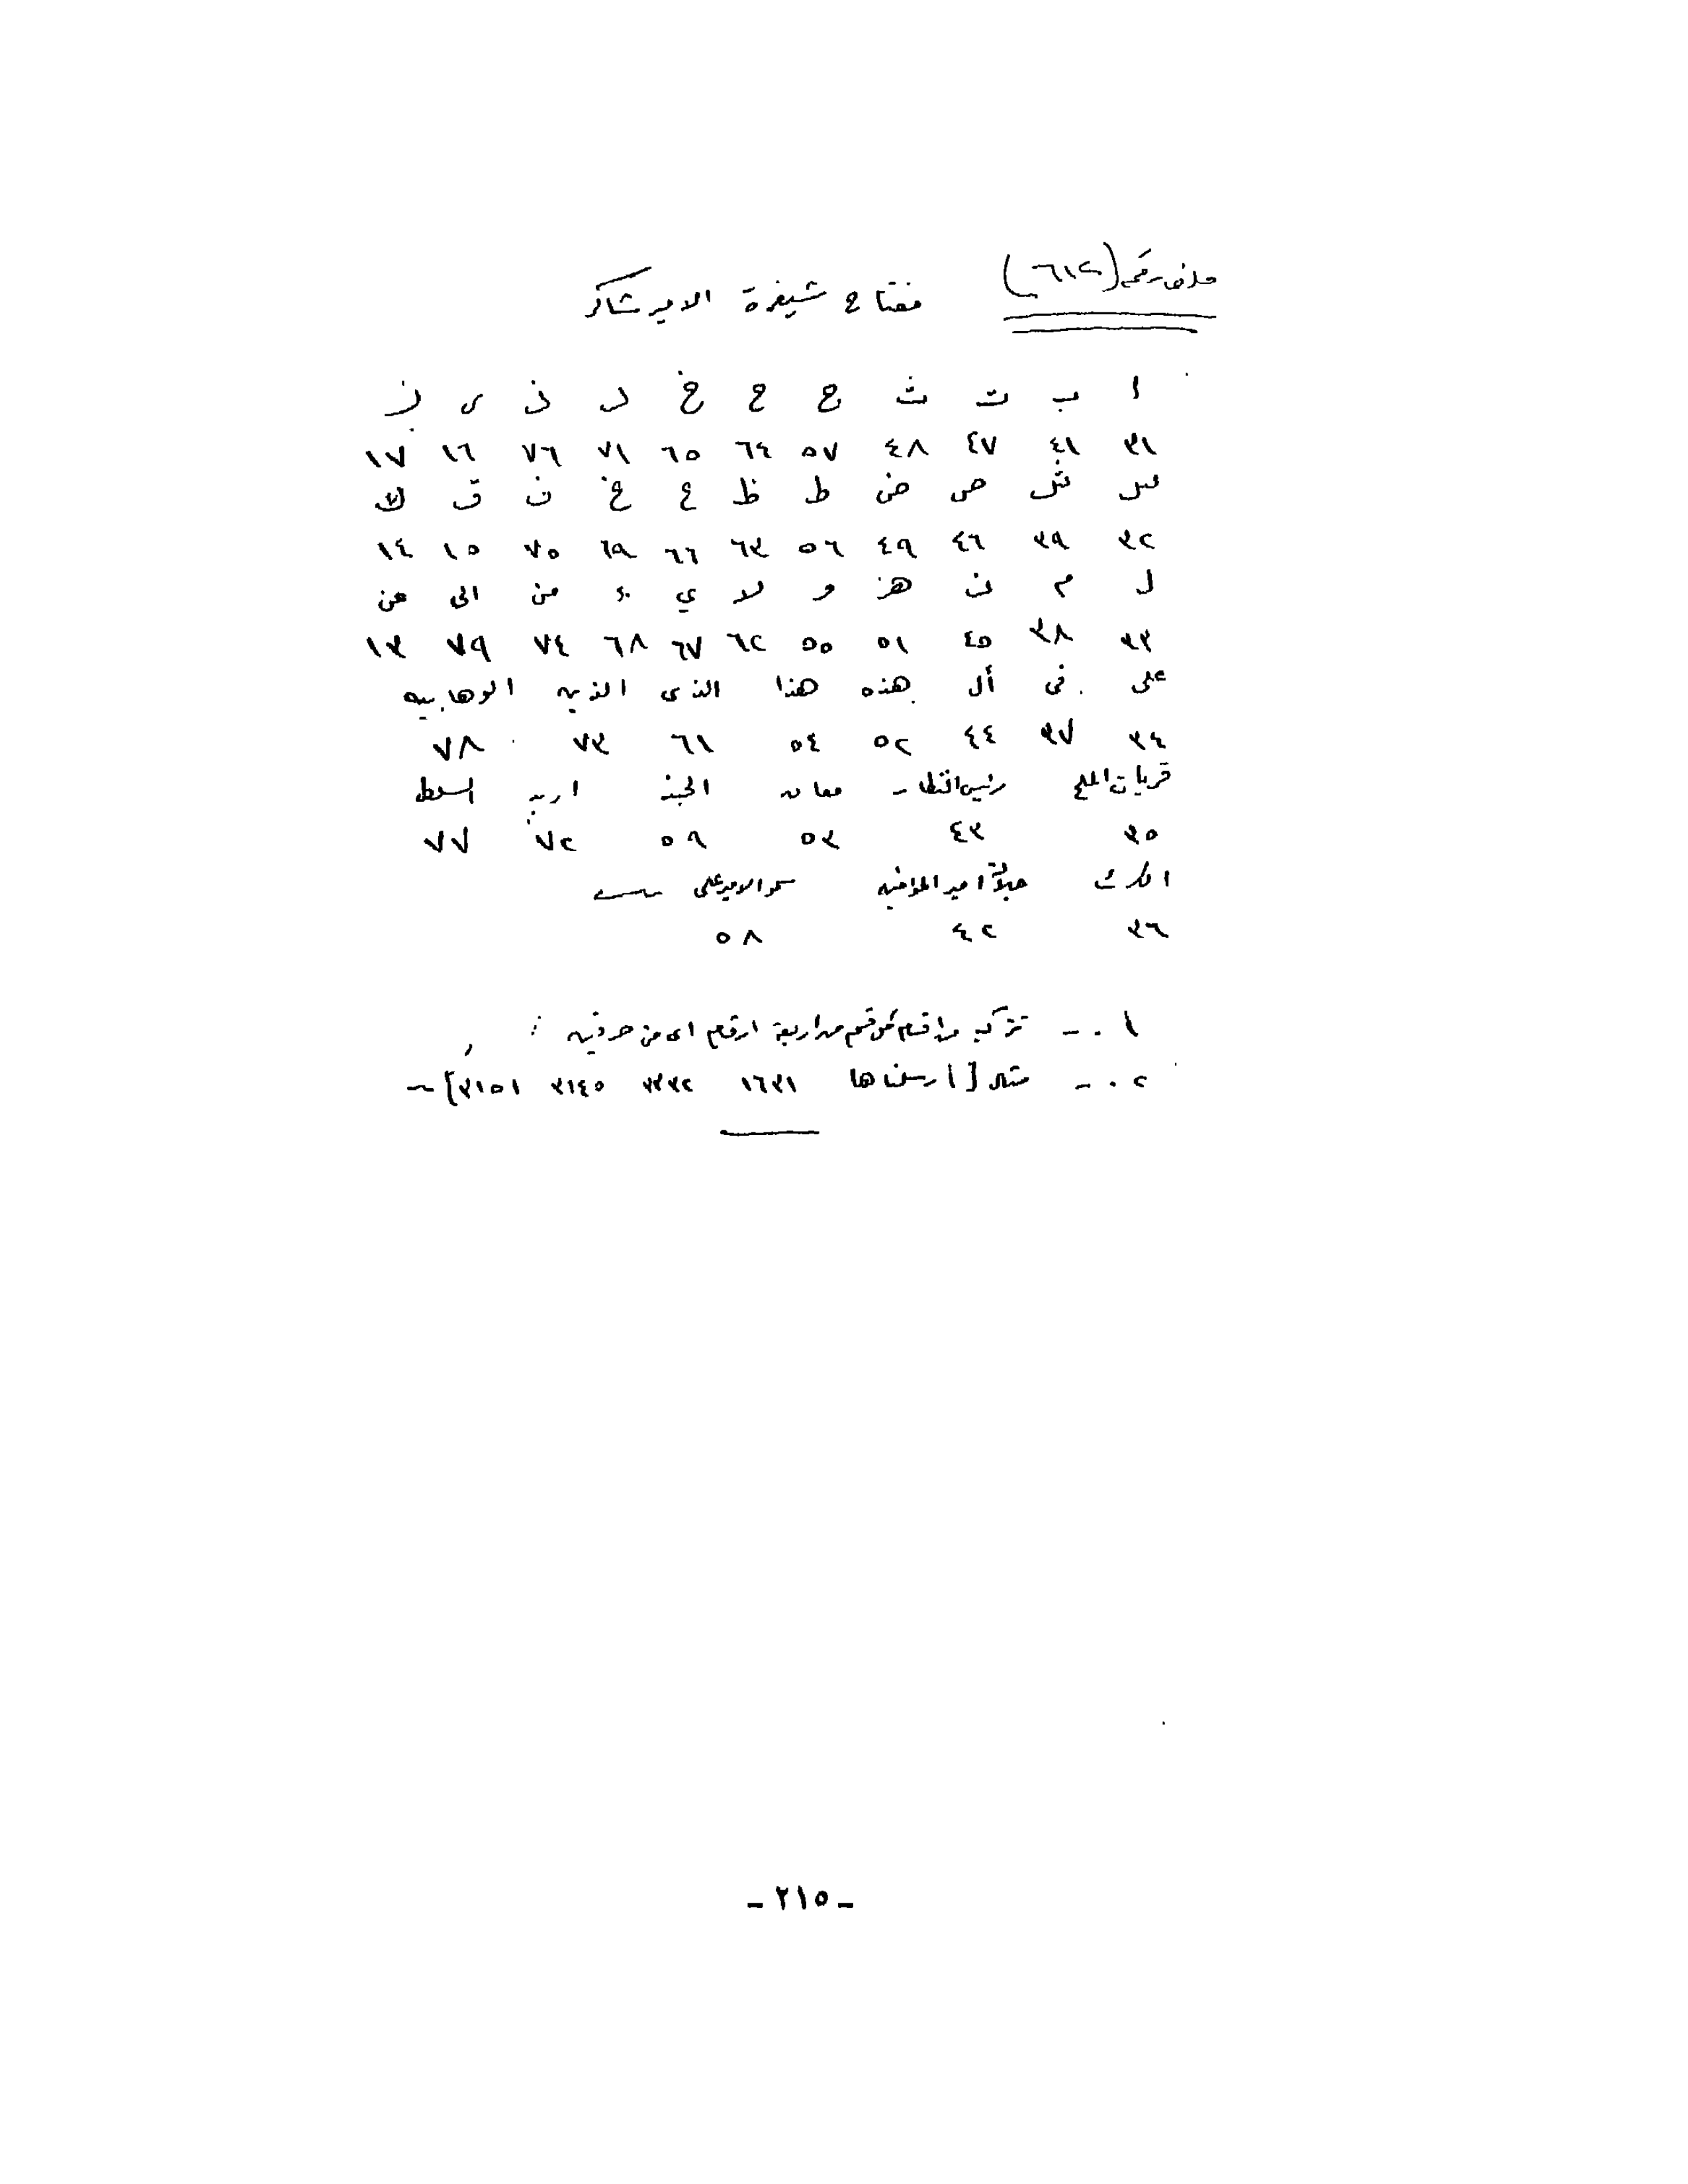 ملف رقم (٦١٢)
مفتاح شيفرة الامير شاكر
ا ب ت ث ج ح خ د ذ ر ز
٣١ ٤١ ٤٧ ٤٨ ٥٧ ٦٤ ٦٥ ٧١ ٧٦ ١٦ ١٧
س ش ص ض ط ظ ع غ ف ق ك
٣٢ ٣٩ ٤٦ ٤٩ ٥٦ ٦٣ ٦٦ ٦٩ ٧٥ ١٥ ١٤
ل م ن هـ و لا ي ء من الى عن
٣٣ ٣٨ ٤٥ ٥١ ٥٥ ٦٢ ٦٧ ٦٨ ٧٤ ٧٩ ١٣
على في أل هذه هذا الذى الذين الوهابيه
٣٤ ٣٧ ٤٤ ٥٢ ٥٤ ٦١ ٧٣ ٧٨
قريات الملح رئيس النظار معان الجند اربد السلط
٣٥ ٤٣ ٥٣ ٥٩ ٧٢ ٧٧
الكرك جلالة امير المؤمنين سمو الامير علي
٣٦ ٤٢ ٥٨
١ ـ تتركب من اقسام كل قسم من اربعة ارقام اى من حرفين
٢ ـ مثال [ ارسلناها ١٦٣١ ٣٣٣٢ ٣١٤٥ ٣١٥١ ]
ـ ٢١٥ ـ